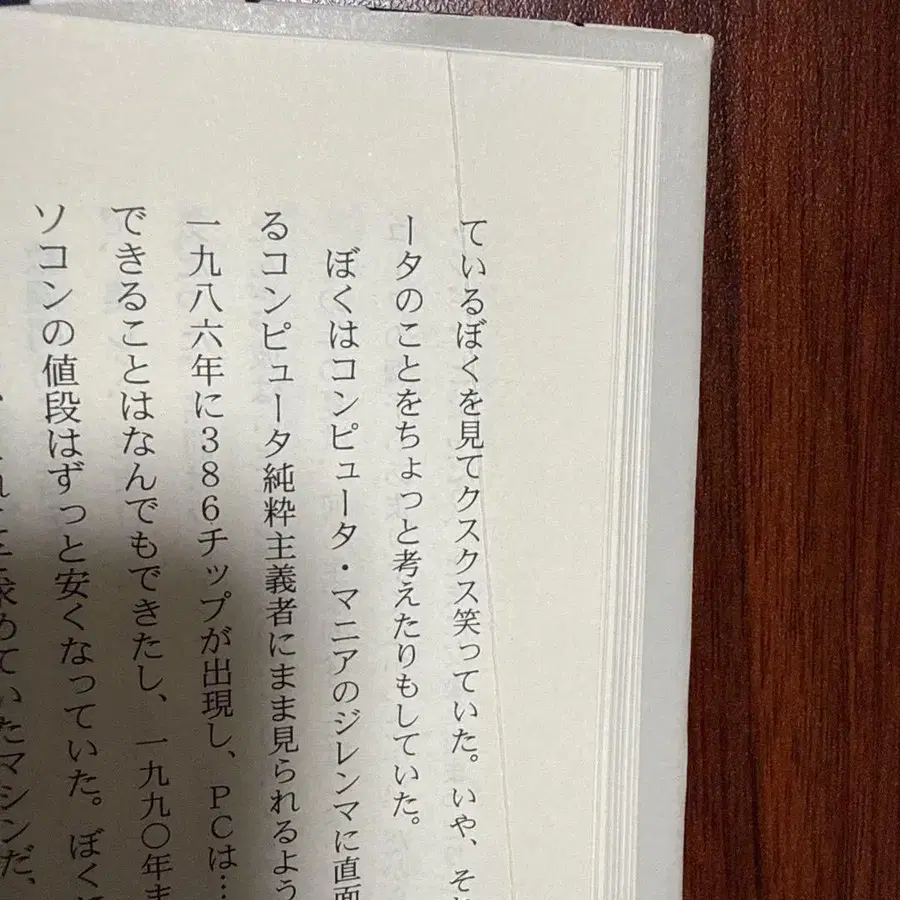 ているぼくを見てクスクス笑っていた。いや、そ
ータのことをちょっと考えたりもしていた。
ぼくはコンピュータ・マニアのジレンマに直面
るコンピュータ純粋主義者にまま見られるよう
一九八六年に386チップが出現し、PCは…
できることはなんでもできたし、一九九〇年ま
ソコンの値段はずっと安くなっていた。ぼく
求めていたマシンだ、